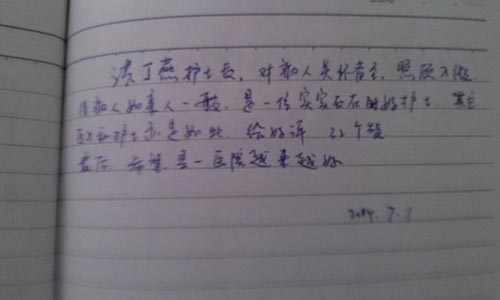 读丁燕护士长，对病人关怀备至，照顾入微
待病人如亲人一般，是一位实实在在的好护士，其它
护士亦是如此，给好评，32个赞
最后希望县一医院越来越好
2014.7.1